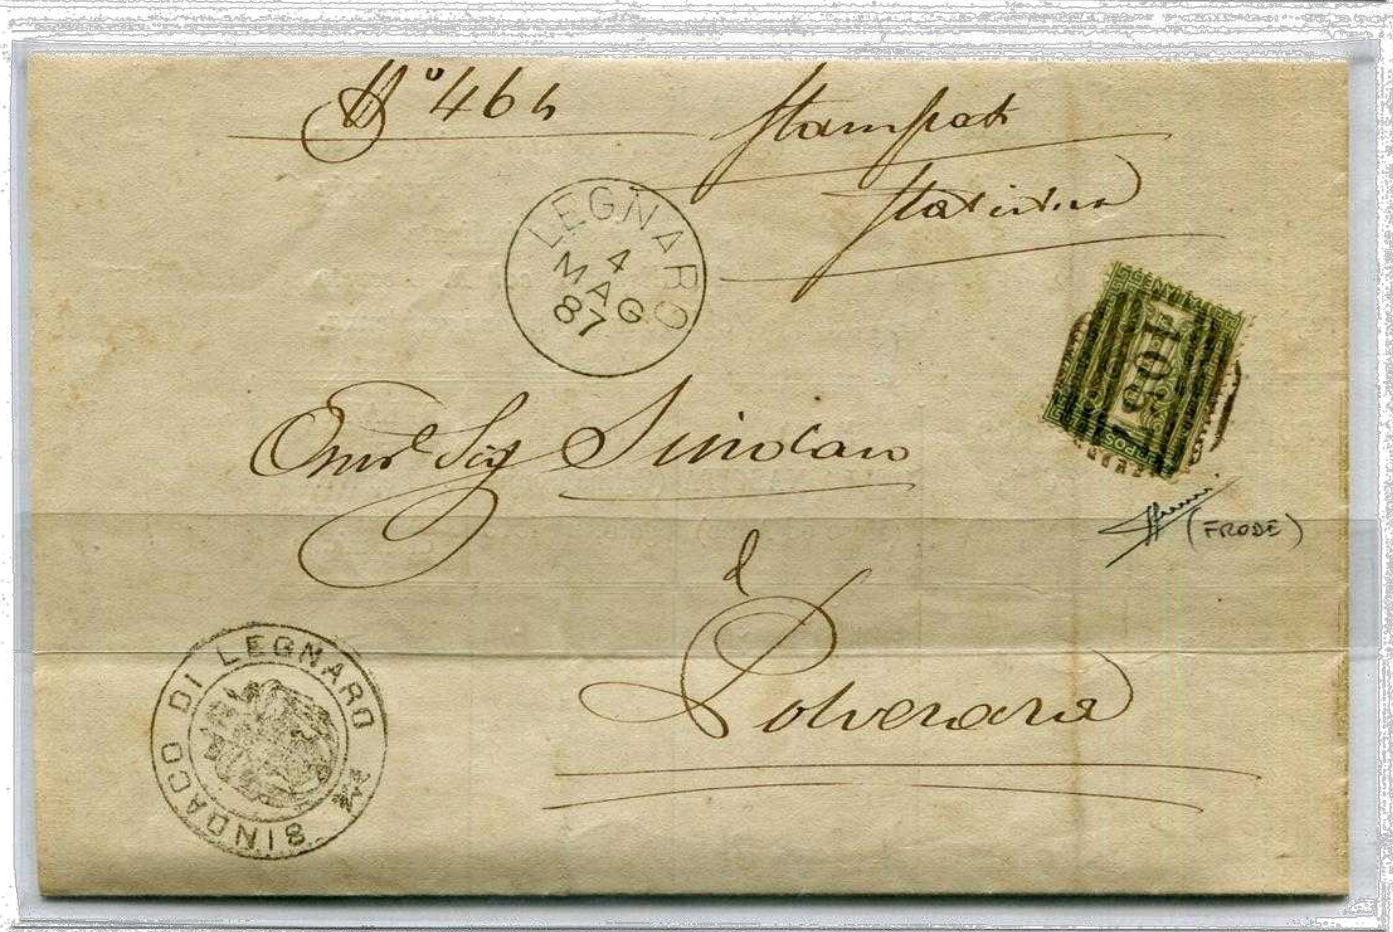 Nº 464
Stampati
statistica
LEGNARO
4
MAG
87
Onor Sig Sindaco
(FRODE)
di
Polverara
SINDACO DI LEGNARO